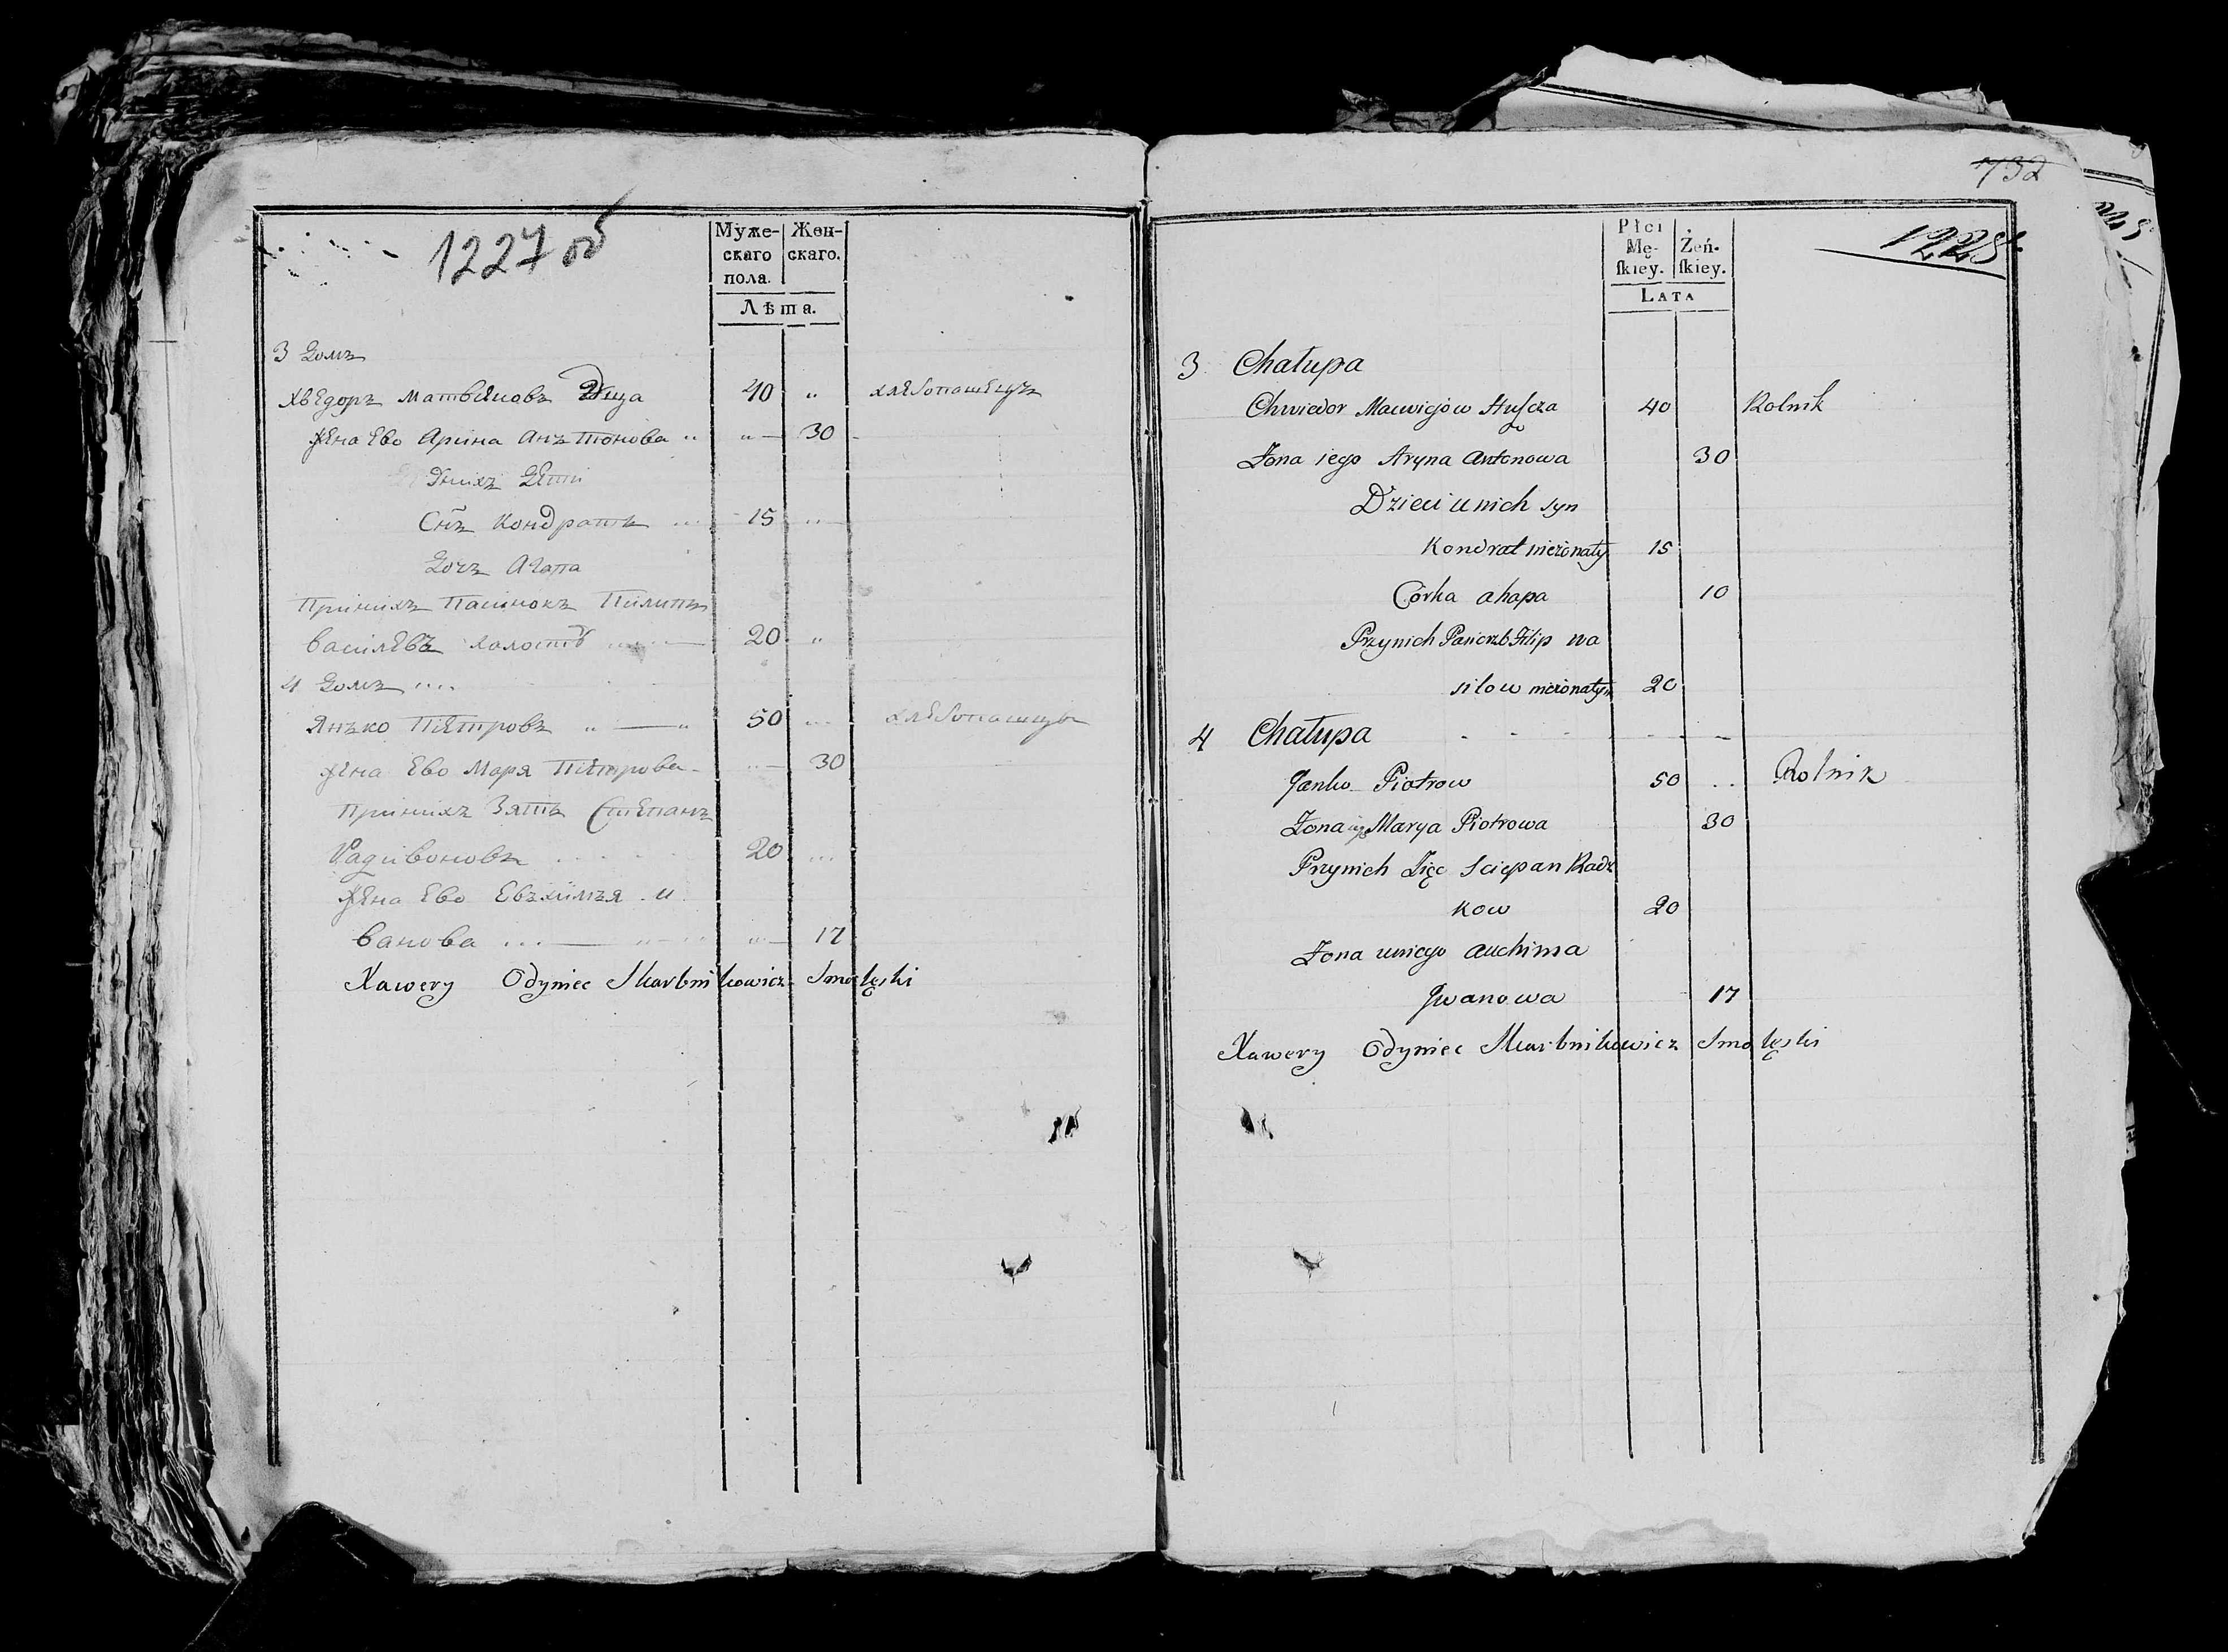 1227 об
Муже-
скаго
пола.
Жен-
скаго.
Лѣта.
3 Домъ
Хведоръ Матвѣиовъ 40 " хлебопашецъ
жена Ево Арина Анътонова " " 30
У них Дети
Снъ Кондратъ 15 "
Дочъ Агапа
При них Пасинокъ Пилипъ
Василевъ холостъ 20 "
4 Домъ ....
Янъко Петровъ " — " 50 ... хлебопашцы
жена Ево Маря Петрова 30
При них Зять Степанъ
Радивоновъ 20 ...
жена Ево Евъхимъя И
ванова ... 17
Xawery Odyniec Skarbnikowicz Smoleski
732
1228
Płci
Mę-
ſkiey.
Żeń-
ſkiey.
Lata
3 Chałupa
Chwiedor Macwiejow 40 Rolnik
Żona iego Aryna Antonowa 30
Dzieci u nich syn
Kondrat nieżonaty 15
Córka ahapa 10
Przy nich Filip wa
silow nieżonaty 20
4 Chałupa - - - - - - -
Janko Piotrow 50 .. Rolnik
Żona iego Marya Piotrowa 30
Przynich Zięc Sciepan Radz
kow 20
Żona uniego auchima
Jwanowa 17
Xawery Odyniec Skarbnikowicz Smoleski